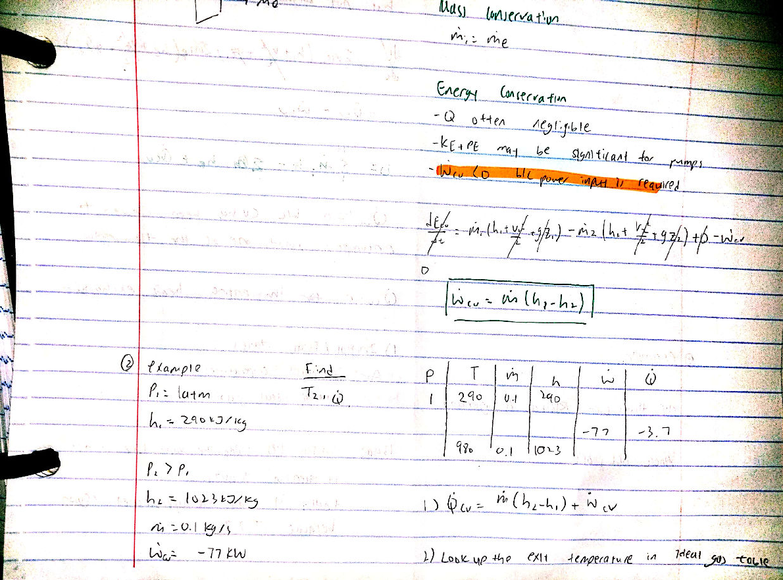 ṁe
Mass Conservation
ṁ₁ = ṁe
Energy Conservation
- Q often negligible
- KE+PE may be significant for pumps
- Ẇcv < 0 b/c power input is required
dEcv/dt = ṁ₁(h₁ + V₁²/2 + gz₁) - ṁ₂(h₂ + V₂²/2 + gz₂) + 0 - Ẇcv
0
Ẇcv = ṁ(h₁-h₂)
② example Find
P₁ = 1atm T₂, Q̇
h₁ = 290 kJ/kg
P₂ > P₁
h₂ = 1023 kJ/kg
ṁ = 0.1 kg/s
Ẇcv = -77 kW
P T ṁ h Ẇ Q̇
1 290 0.1 290
-77 -3.7
980 0.1 1023
1) Q̇cv = ṁ(h₂-h₁) + Ẇcv
2) Look up the exit temperature in ideal gas table